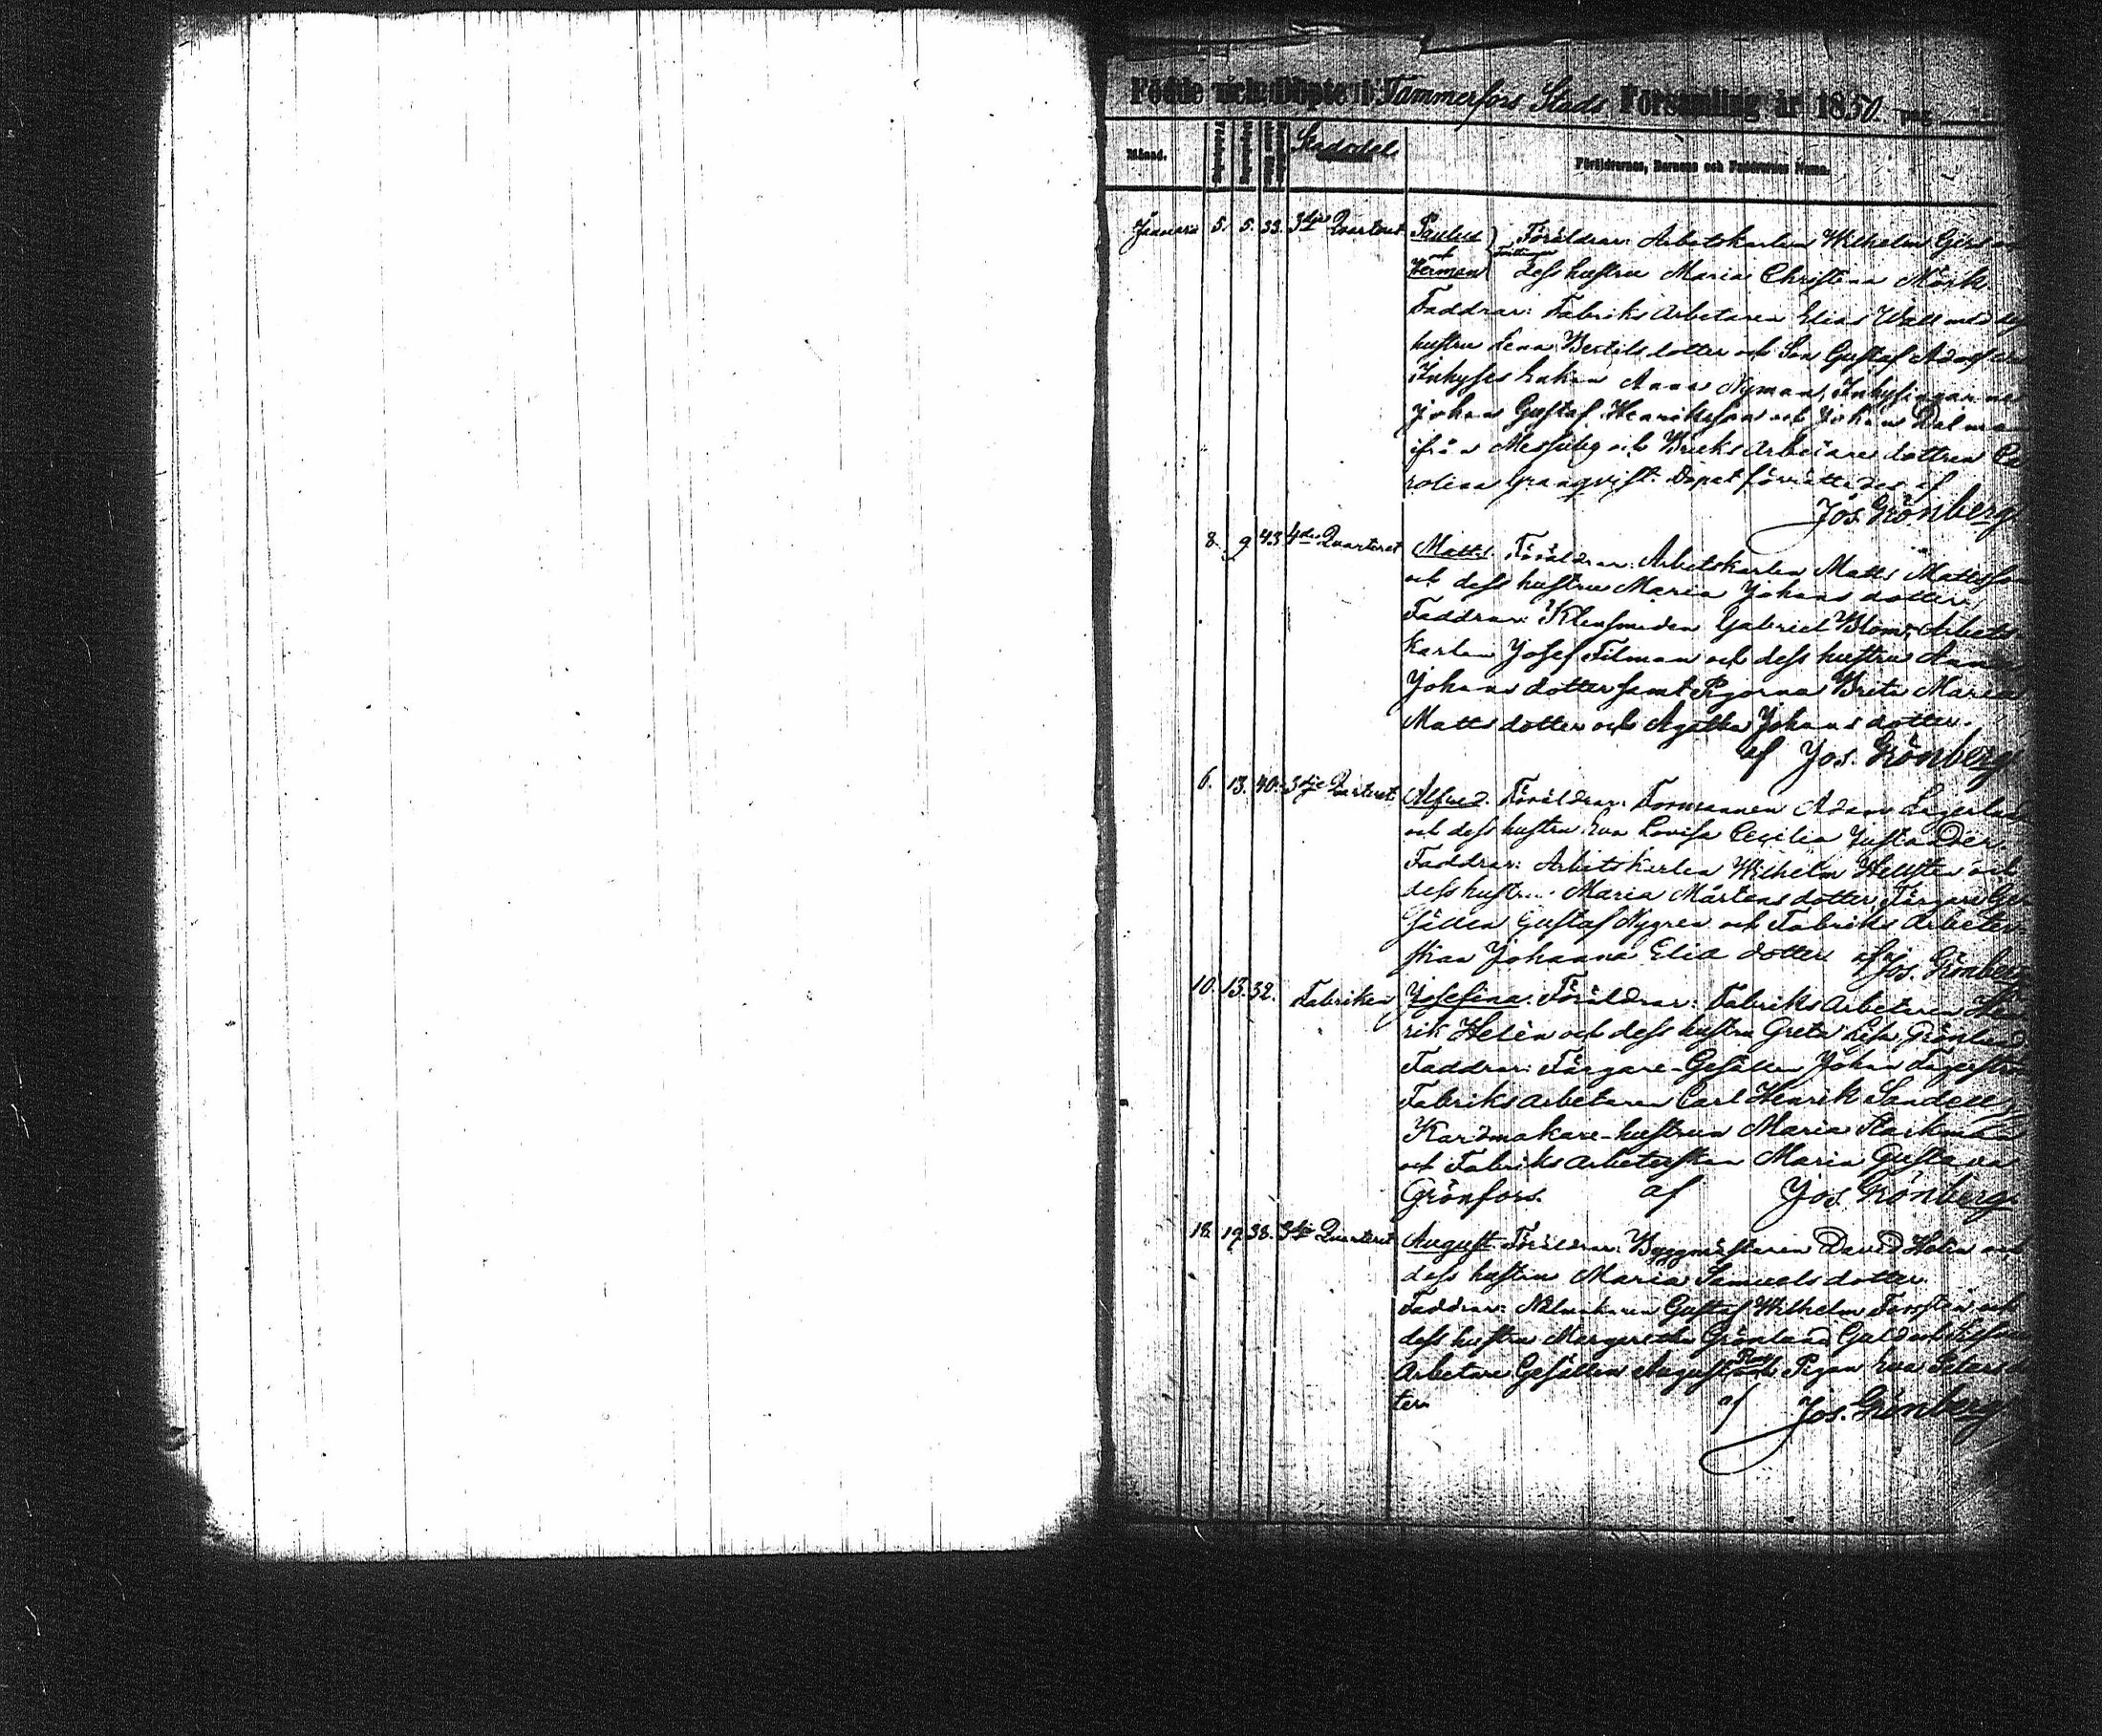 Födde och Döpte i Tammerfors Stads Församling år 1850. pag.
Månad. Stadsdel. Föräldrarnes, Barnens och Faddrarnes Namn.
Januari 5. 5. 33. 3dje Quarteret Paulus Föräldrar: Arbetskarlen Wilhelm
och Herman Tvillingar dess hustru Maria Christina Mörk.
Faddrar: Fabriks Arbetaren Elias Wall med
hustru Lena Bertils dotter och Son Gustaf Adolf
Inhyses Enkan Anna Nyman, Inhysingarne
Johan Gustaf Henriksson och Johan Dalman
ifrån Messuby och Bruks Arbetare dottren Ca
rolina Granqvist. Dopet förrättades af
Jos. Grönberg
8. 9 43 4de Quarteret Matts. Föräldrar: Arbetskarlen Matts Mattsson
och dess hustru Maria Johans dotter.
Faddrar: Klensmeden Gabriel Blom, Arbets
karlen Josef Filman och dess hustru Anna
Johans dotter samt Pigorna Brita Maria
Matts dotter och Agatha Johans dotter.
af Jos. Grönberg
6. 13. 40. 3dje Quarteret Alfred. Föräldrar: Formannen Adam
och dess hustru Eva Lovisa Cecilia Justander.
Faddrar: Arbetskarlen Wilhelm Hellsten och
dess hustru Maria Mårtens dotter, Färgare Ge
sällen Gustaf Nygren och Fabriks Arbeter
skan Johanna Elia dotter af Jos. Grönberg
10. 13. 32. Fabriken Josefina. Föräldrar: Fabriks Arbetaren Hen
rik Helén och dess hustru Greta Lisa Grönlund
Faddrar: Färgare-Gesällen Johan Fagerström
Fabriks arbetaren Carl Henrik Sandell,
Kardmakare-hustrun Maria
och Fabriks arbeterskan Maria Gustava
Grönfors. af Jos. Grönberg.
18. 19. 38. 3dje Quarteret August Föräldrar: Byggmästaren David Holin och
dess hustru Maria Samuels dotter.
Faddrar: Gustaf Wilhelm Forstén och
dess hustru Margaretha Grönlund
Arbetare Gesällen August och Pigan Eva Peters
ter. af Jos. Grönberg